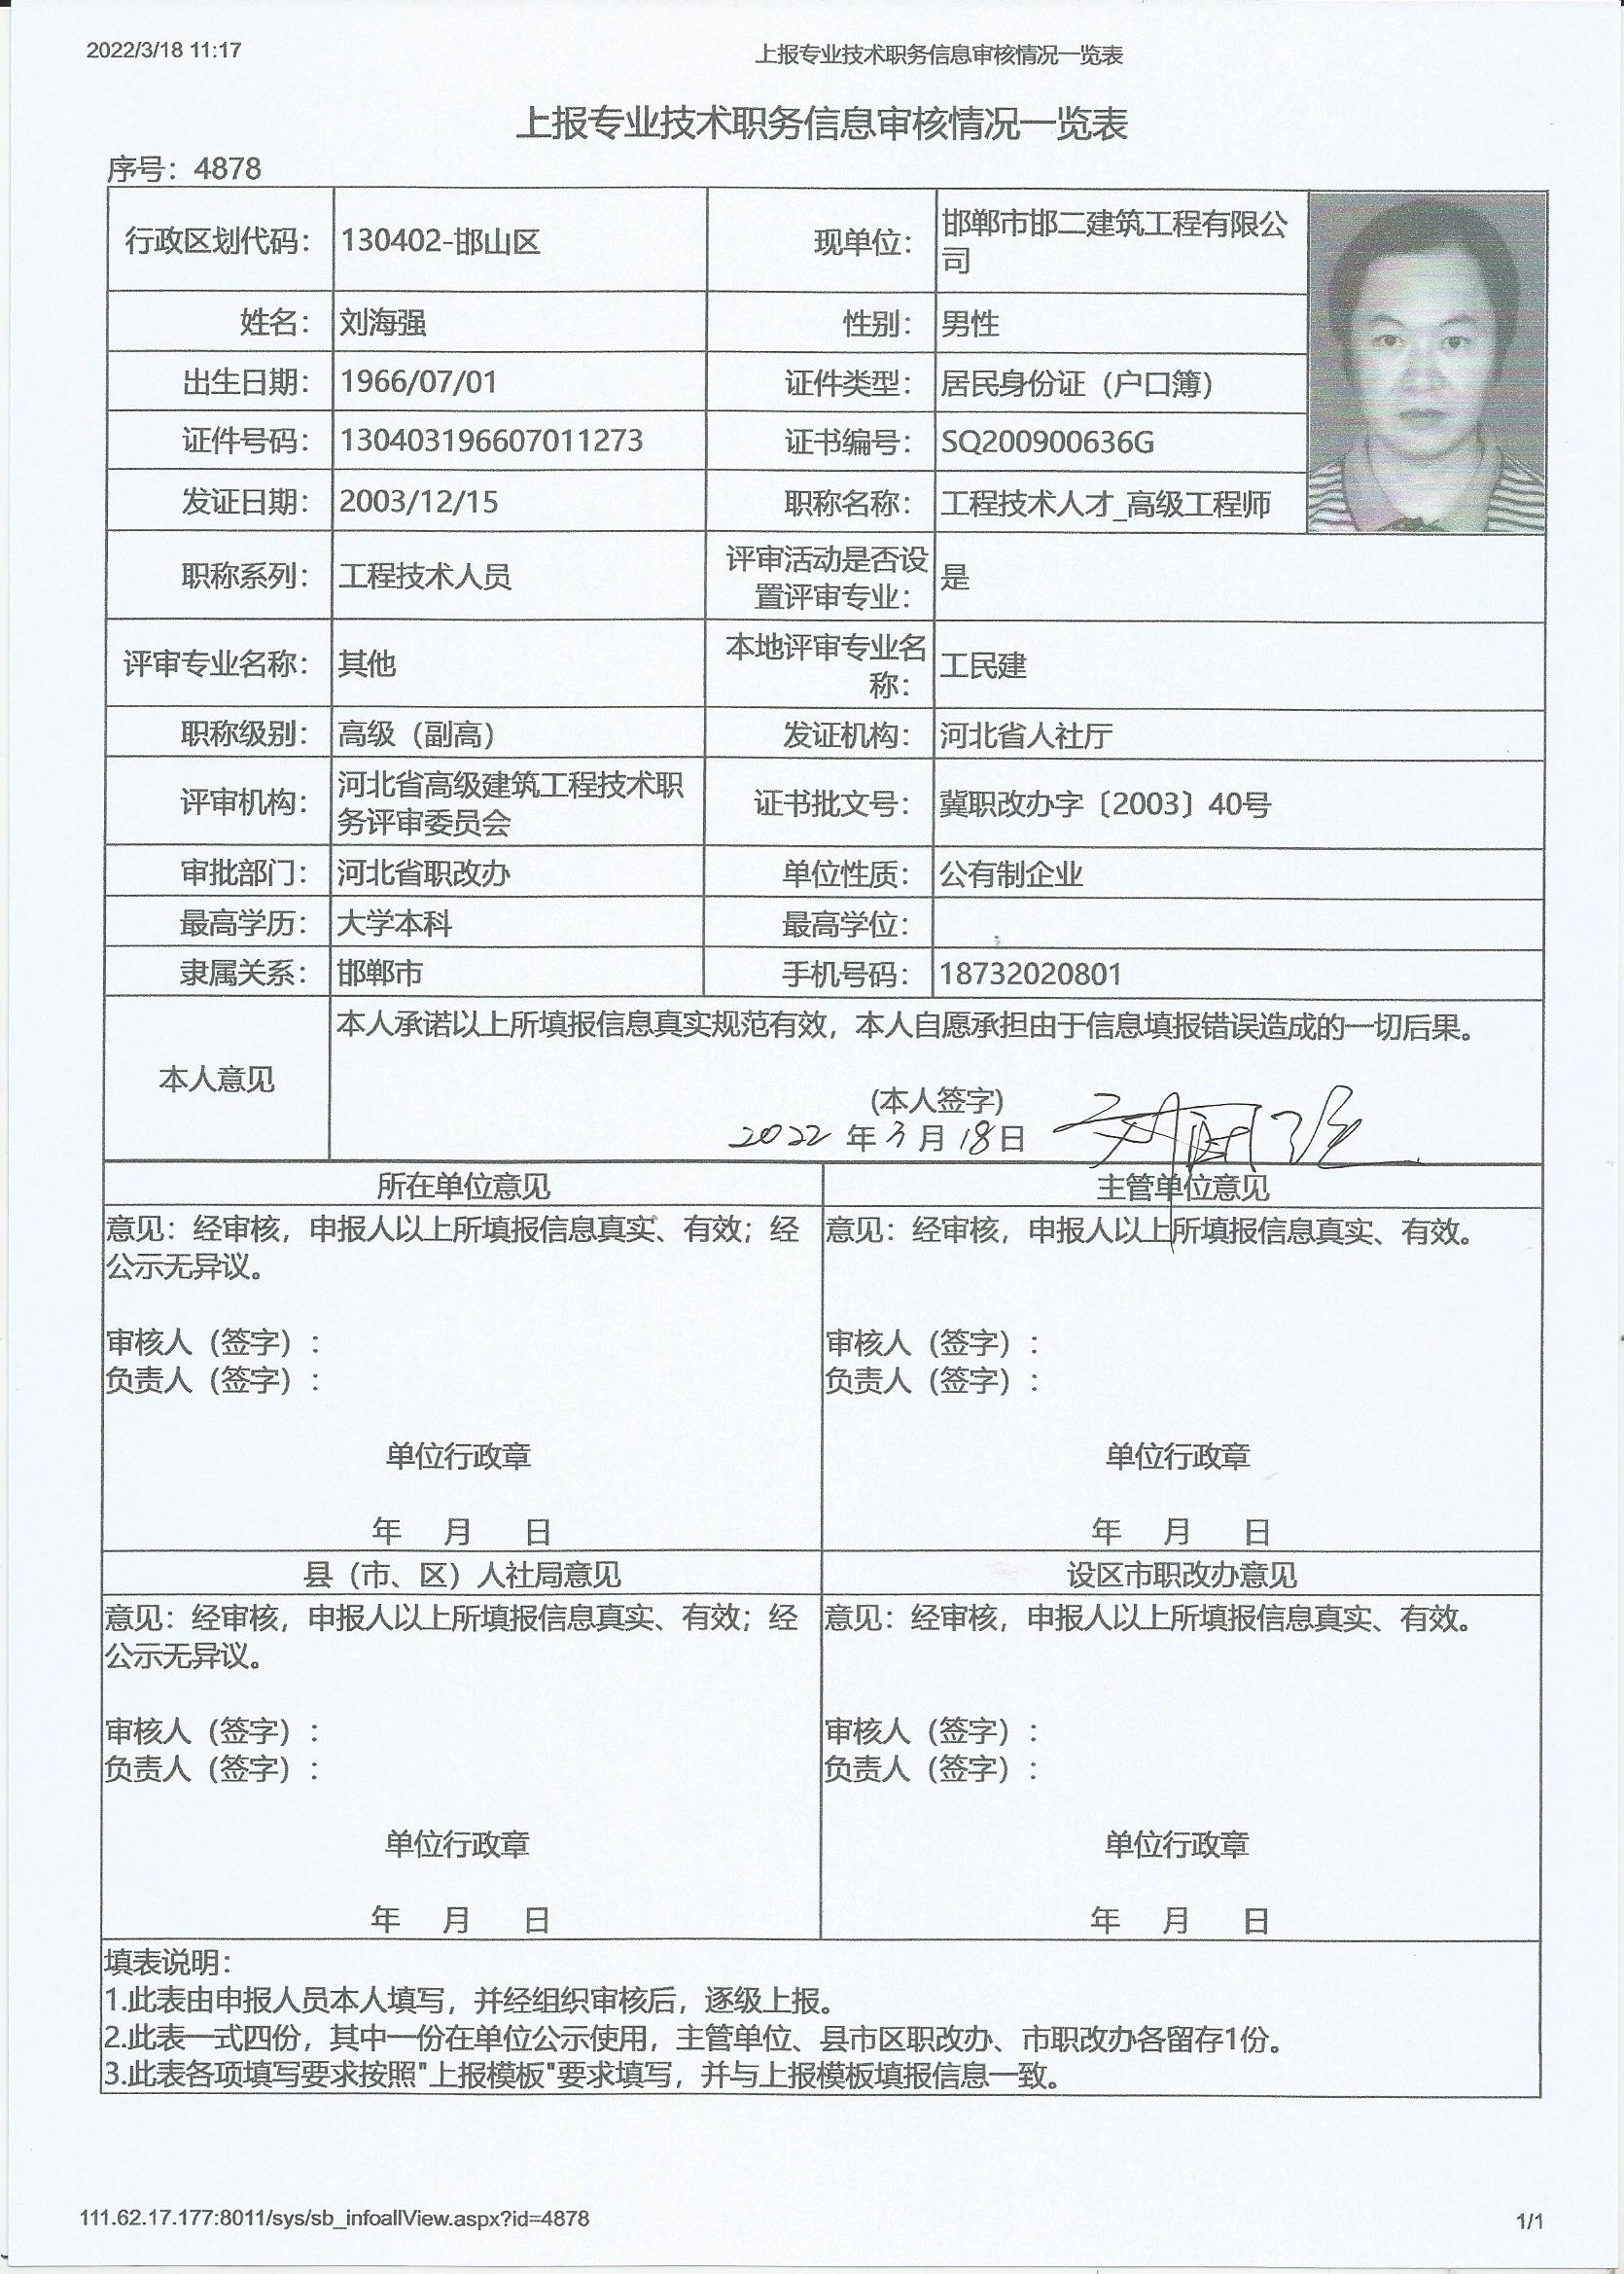 2022/3/18 11:17 上报专业技术职务信息审核情况一览表
上报专业技术职务信息审核情况一览表
序号：4878
行政区划代码： 130402-邯山区 现单位： 邯郸市邯二建筑工程有限公
司
姓名： 刘海强 性别： 男性
出生日期： 1966/07/01 证件类型： 居民身份证（户口簿）
证件号码： 130403196607011273 证书编号： SQ200900636G
发证日期： 2003/12/15 职称名称： 工程技术人才_高级工程师
职称系列： 工程技术人员 评审活动是否设
置评审专业： 是
评审专业名称： 其他 本地评审专业名
称： 工民建
职称级别： 高级（副高） 发证机构： 河北省人社厅
评审机构： 河北省高级建筑工程技术职
务评审委员会 证书批文号： 冀职改办字〔2003〕40号
审批部门： 河北省职改办 单位性质： 公有制企业
最高学历： 大学本科 最高学位：
隶属关系： 邯郸市 手机号码： 18732020801
本人承诺以上所填报信息真实规范有效，本人自愿承担由于信息填报错误造成的一切后果。
本人意见
(本人签字)
2022 年 3 月 18 日 刘海强
所在单位意见 主管单位意见
意见：经审核，申报人以上所填报信息真实、有效；经 意见：经审核，申报人以上所填报信息真实、有效。
公示无异议。
审核人（签字）： 审核人（签字）：
负责人（签字）： 负责人（签字）：
单位行政章 单位行政章
年 月 日 年 月 日
县（市、区）人社局意见 设区市职改办意见
意见：经审核，申报人以上所填报信息真实、有效；经 意见：经审核，申报人以上所填报信息真实、有效。
公示无异议。
审核人（签字）： 审核人（签字）：
负责人（签字）： 负责人（签字）：
单位行政章 单位行政章
年 月 日 年 月 日
填表说明：
1.此表由申报人员本人填写，并经组织审核后，逐级上报。
2.此表一式四份，其中一份在单位公示使用，主管单位、县市区职改办、市职改办各留存1份。
3.此表各项填写要求按照"上报模板"要求填写，并与上报模板填报信息一致。
111.62.17.177:8011/sys/sb_infoallView.aspx?id=4878 1/1